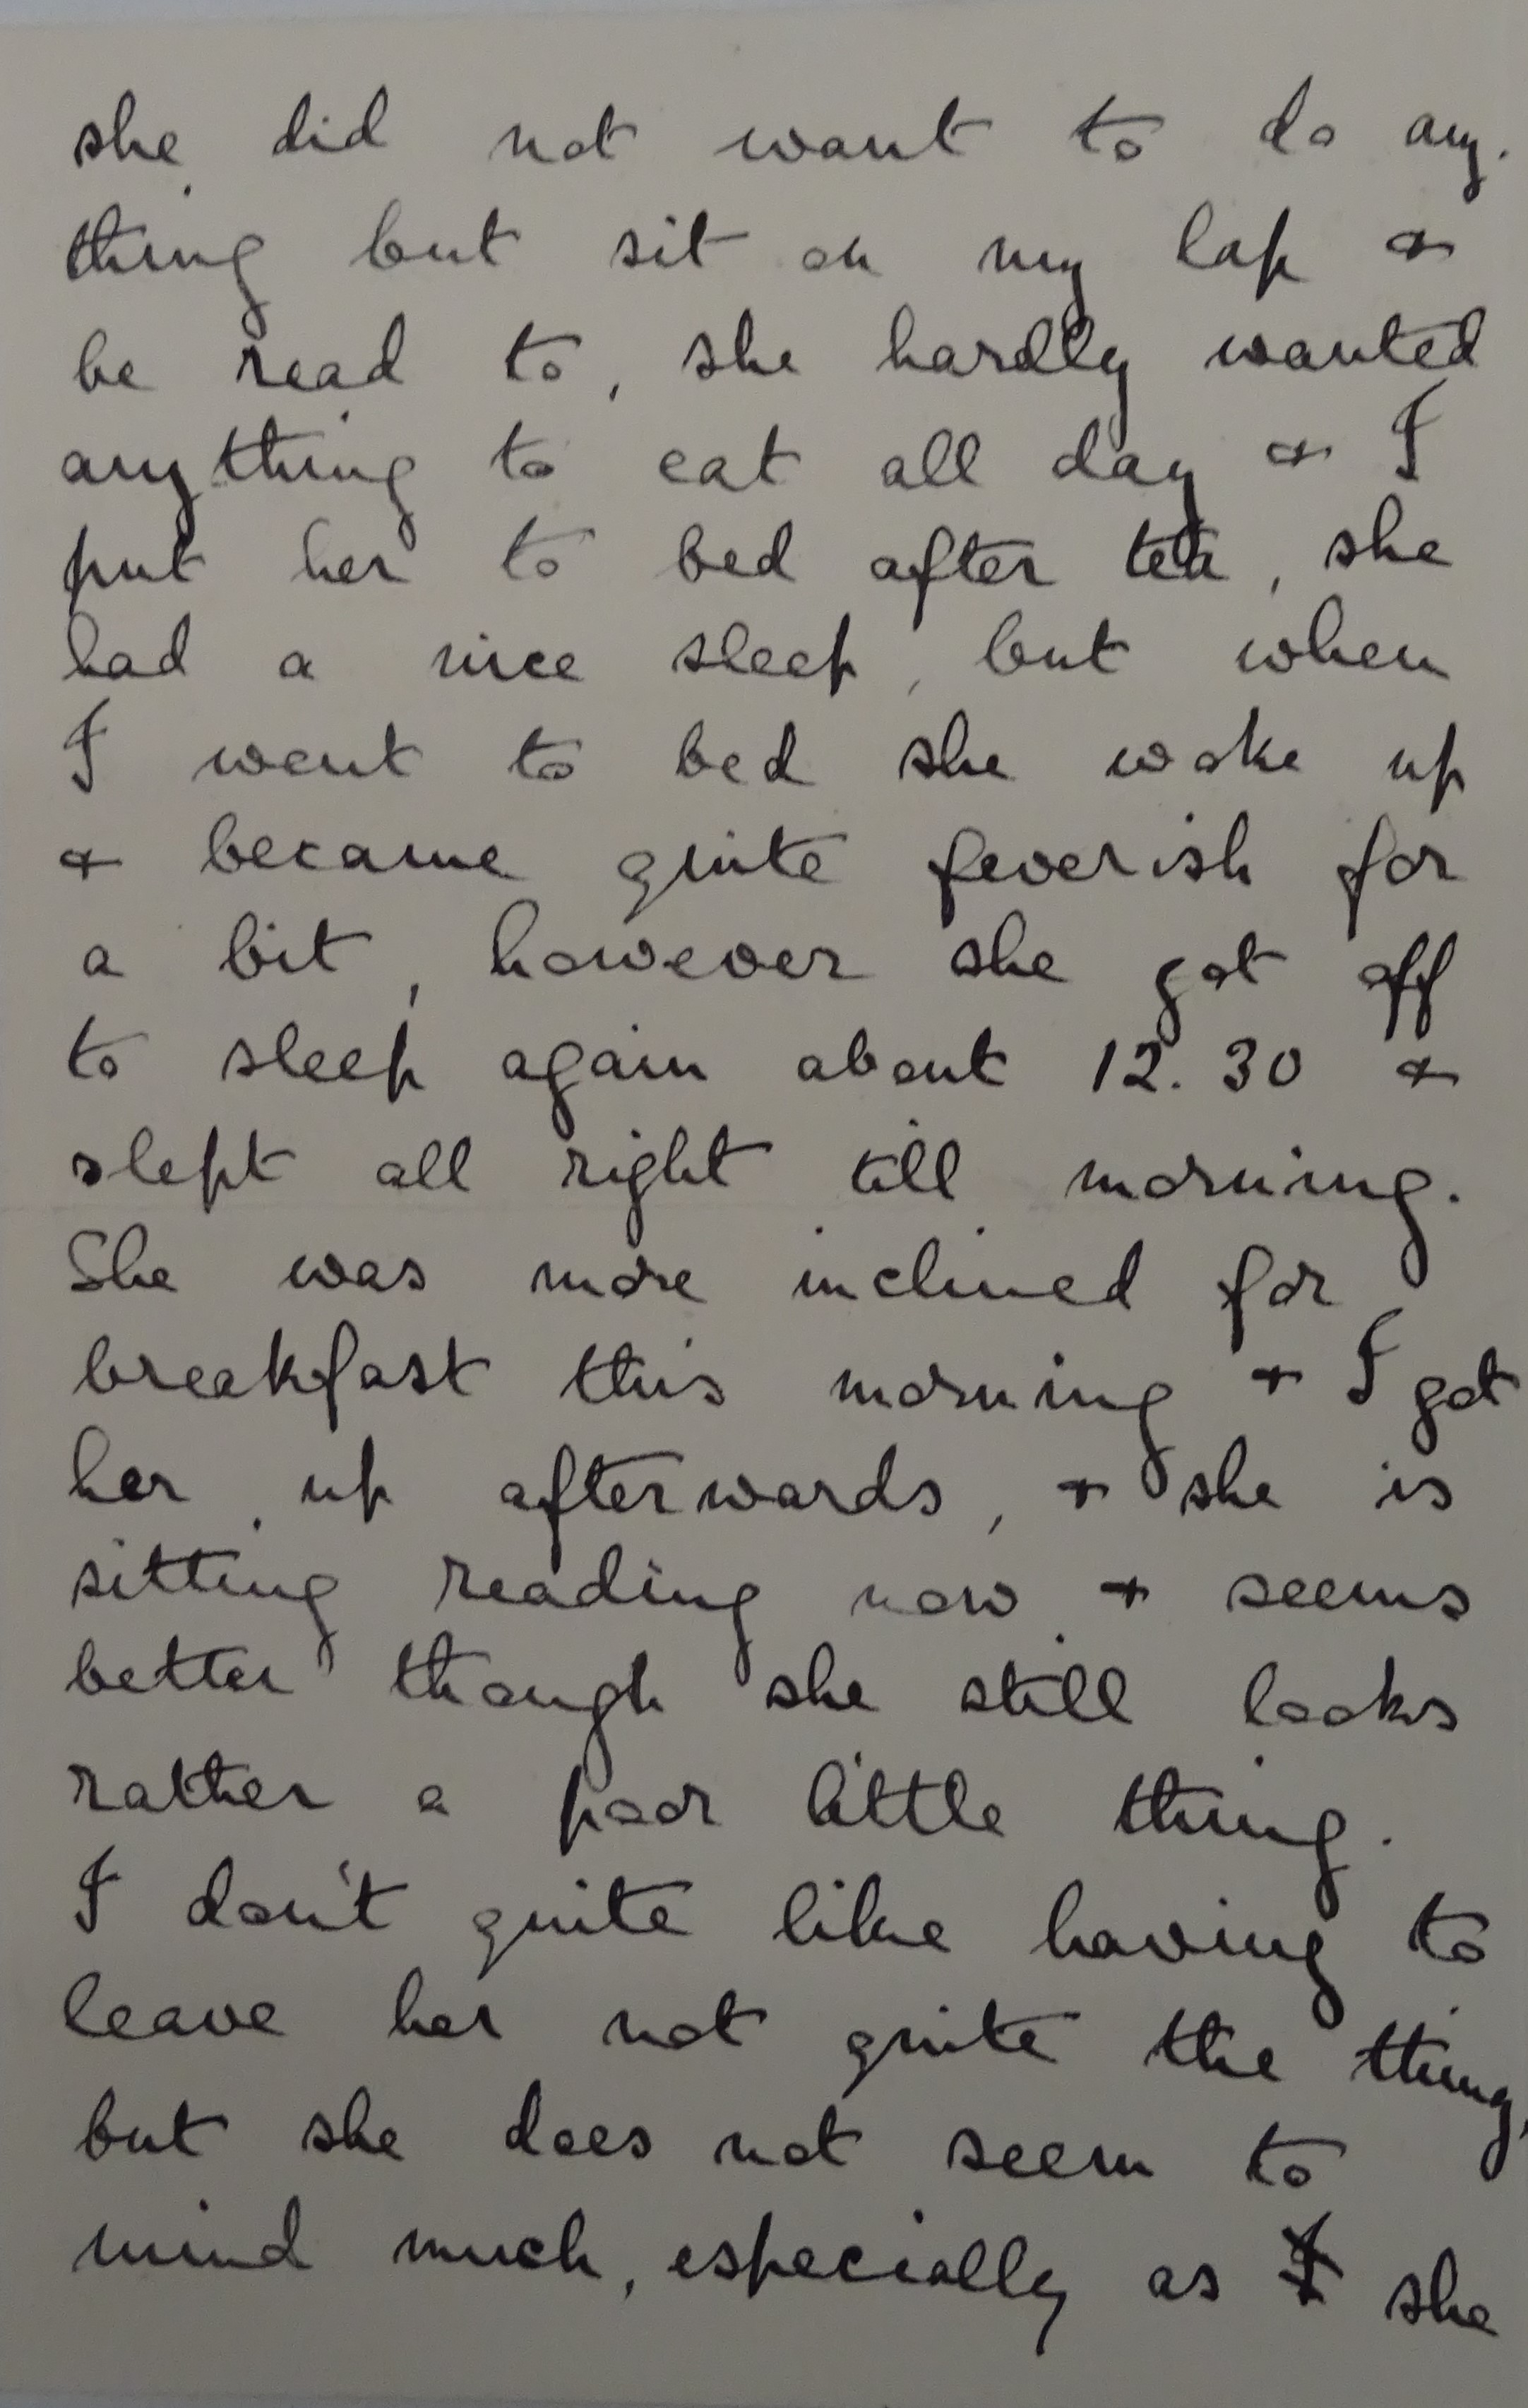 she did not want to do any-
thing but sit on my lap &
be read to, she hardly wanted
anything to eat all day & I
put her to bed after tea, she
had a nice sleep, but when
I went to bed she woke up
& became quite feverish for
a bit, however she got off
to sleep again about 12.30 &
slept all right till morning.
She was more inclined for
breakfast this morning & I got
her up afterwards, & she is
sitting reading now & seems
better though she still looks
rather a poor little thing.
I don't quite like having to
leave her not quite the thing,
but she does not seem to
mind much, especially as I she